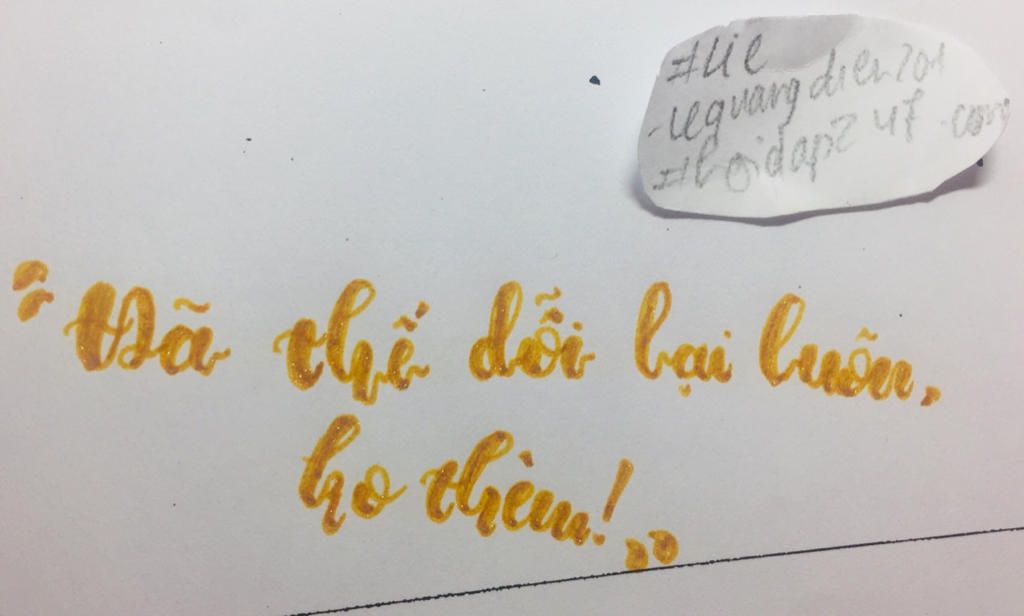 #lie
-lequangdien201
#hoidap247.com
"Đã thế dỗi lại luôn,
ko thèm!"